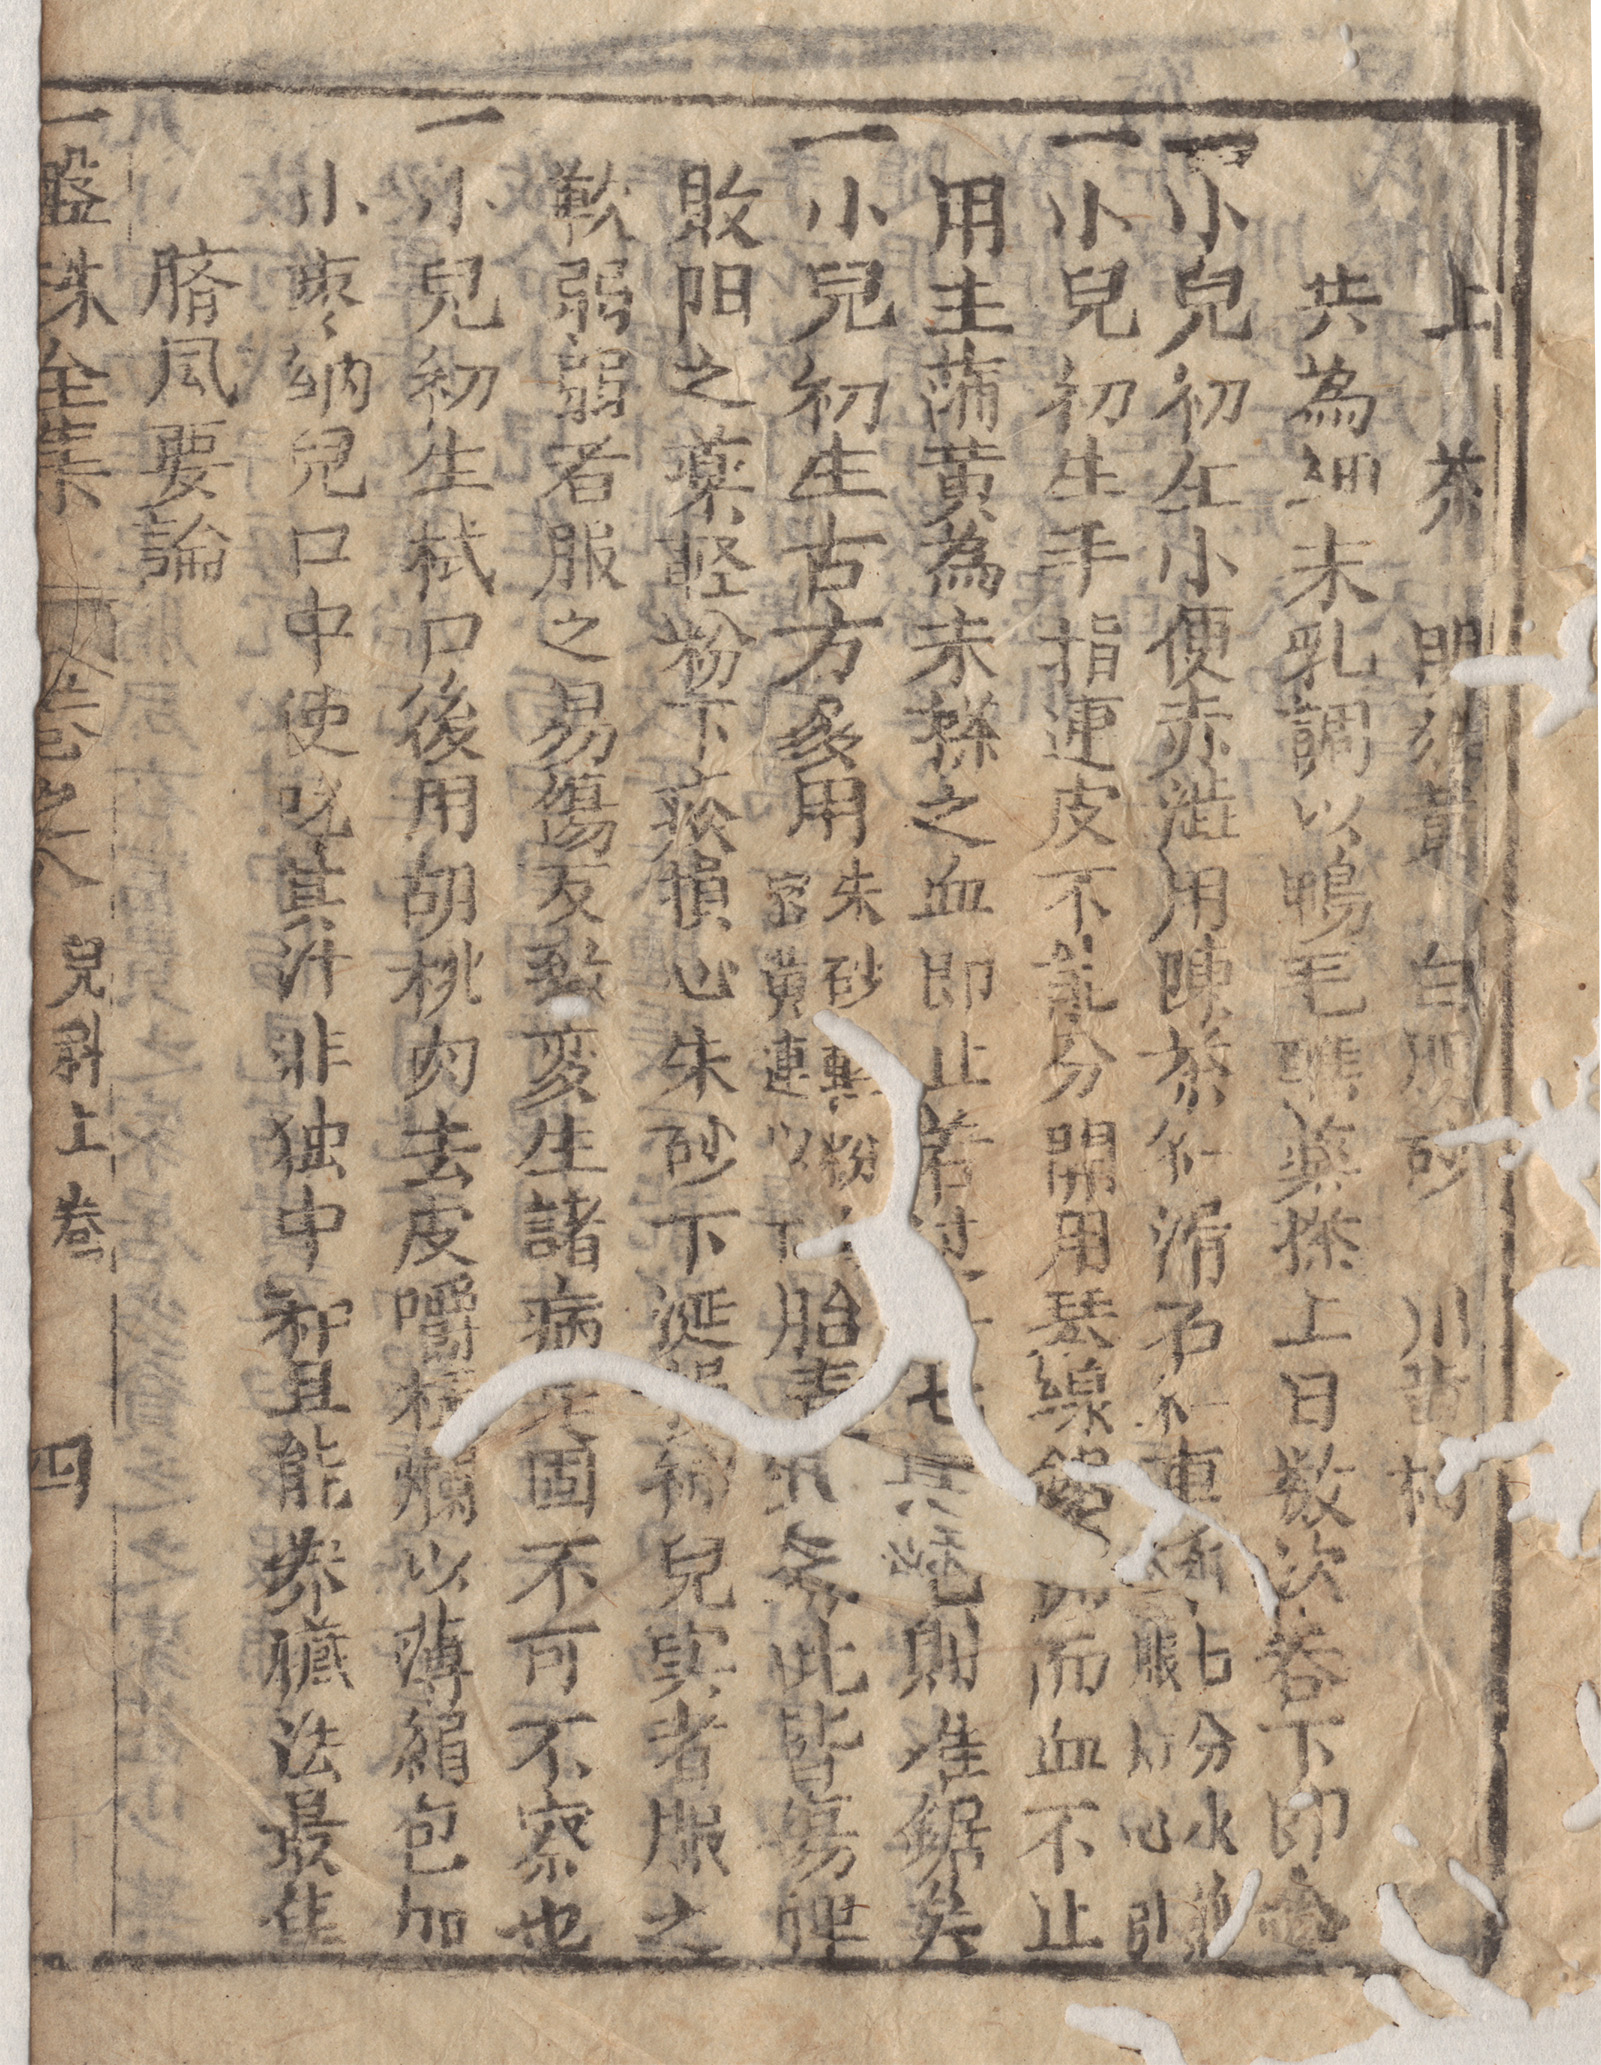 上茶 明雄黄 白硼砂 川黄柏
共為細末乳調以鴨毛蘸藥搽上日数次吞下即
一小児初生小便赤澁用陳茶仁滑石仁車 七分水 眼 心引
一小兒初生手指連皮不能分開用琴線 而血不止
用生蒲黄為末搽之血即止若过 七 則难鋸矣
一小兒初生古方多用朱砂輕粉 密黄連以下胎毒 此皆傷脾
敗阳之薬輕粉下痰損心朱砂下涎損 兒寔者服之
軟弱弱者服之易傷反致変生諸病 固不可不察也
一小兒初生拭口後用胡桃肉去皮嚼極爛以薄絹包加
小枣々納兒口中使吮其汁非独中和且能养臓法最佳
臍風要論
一盤珠全集 卷之八 兒科上卷 四